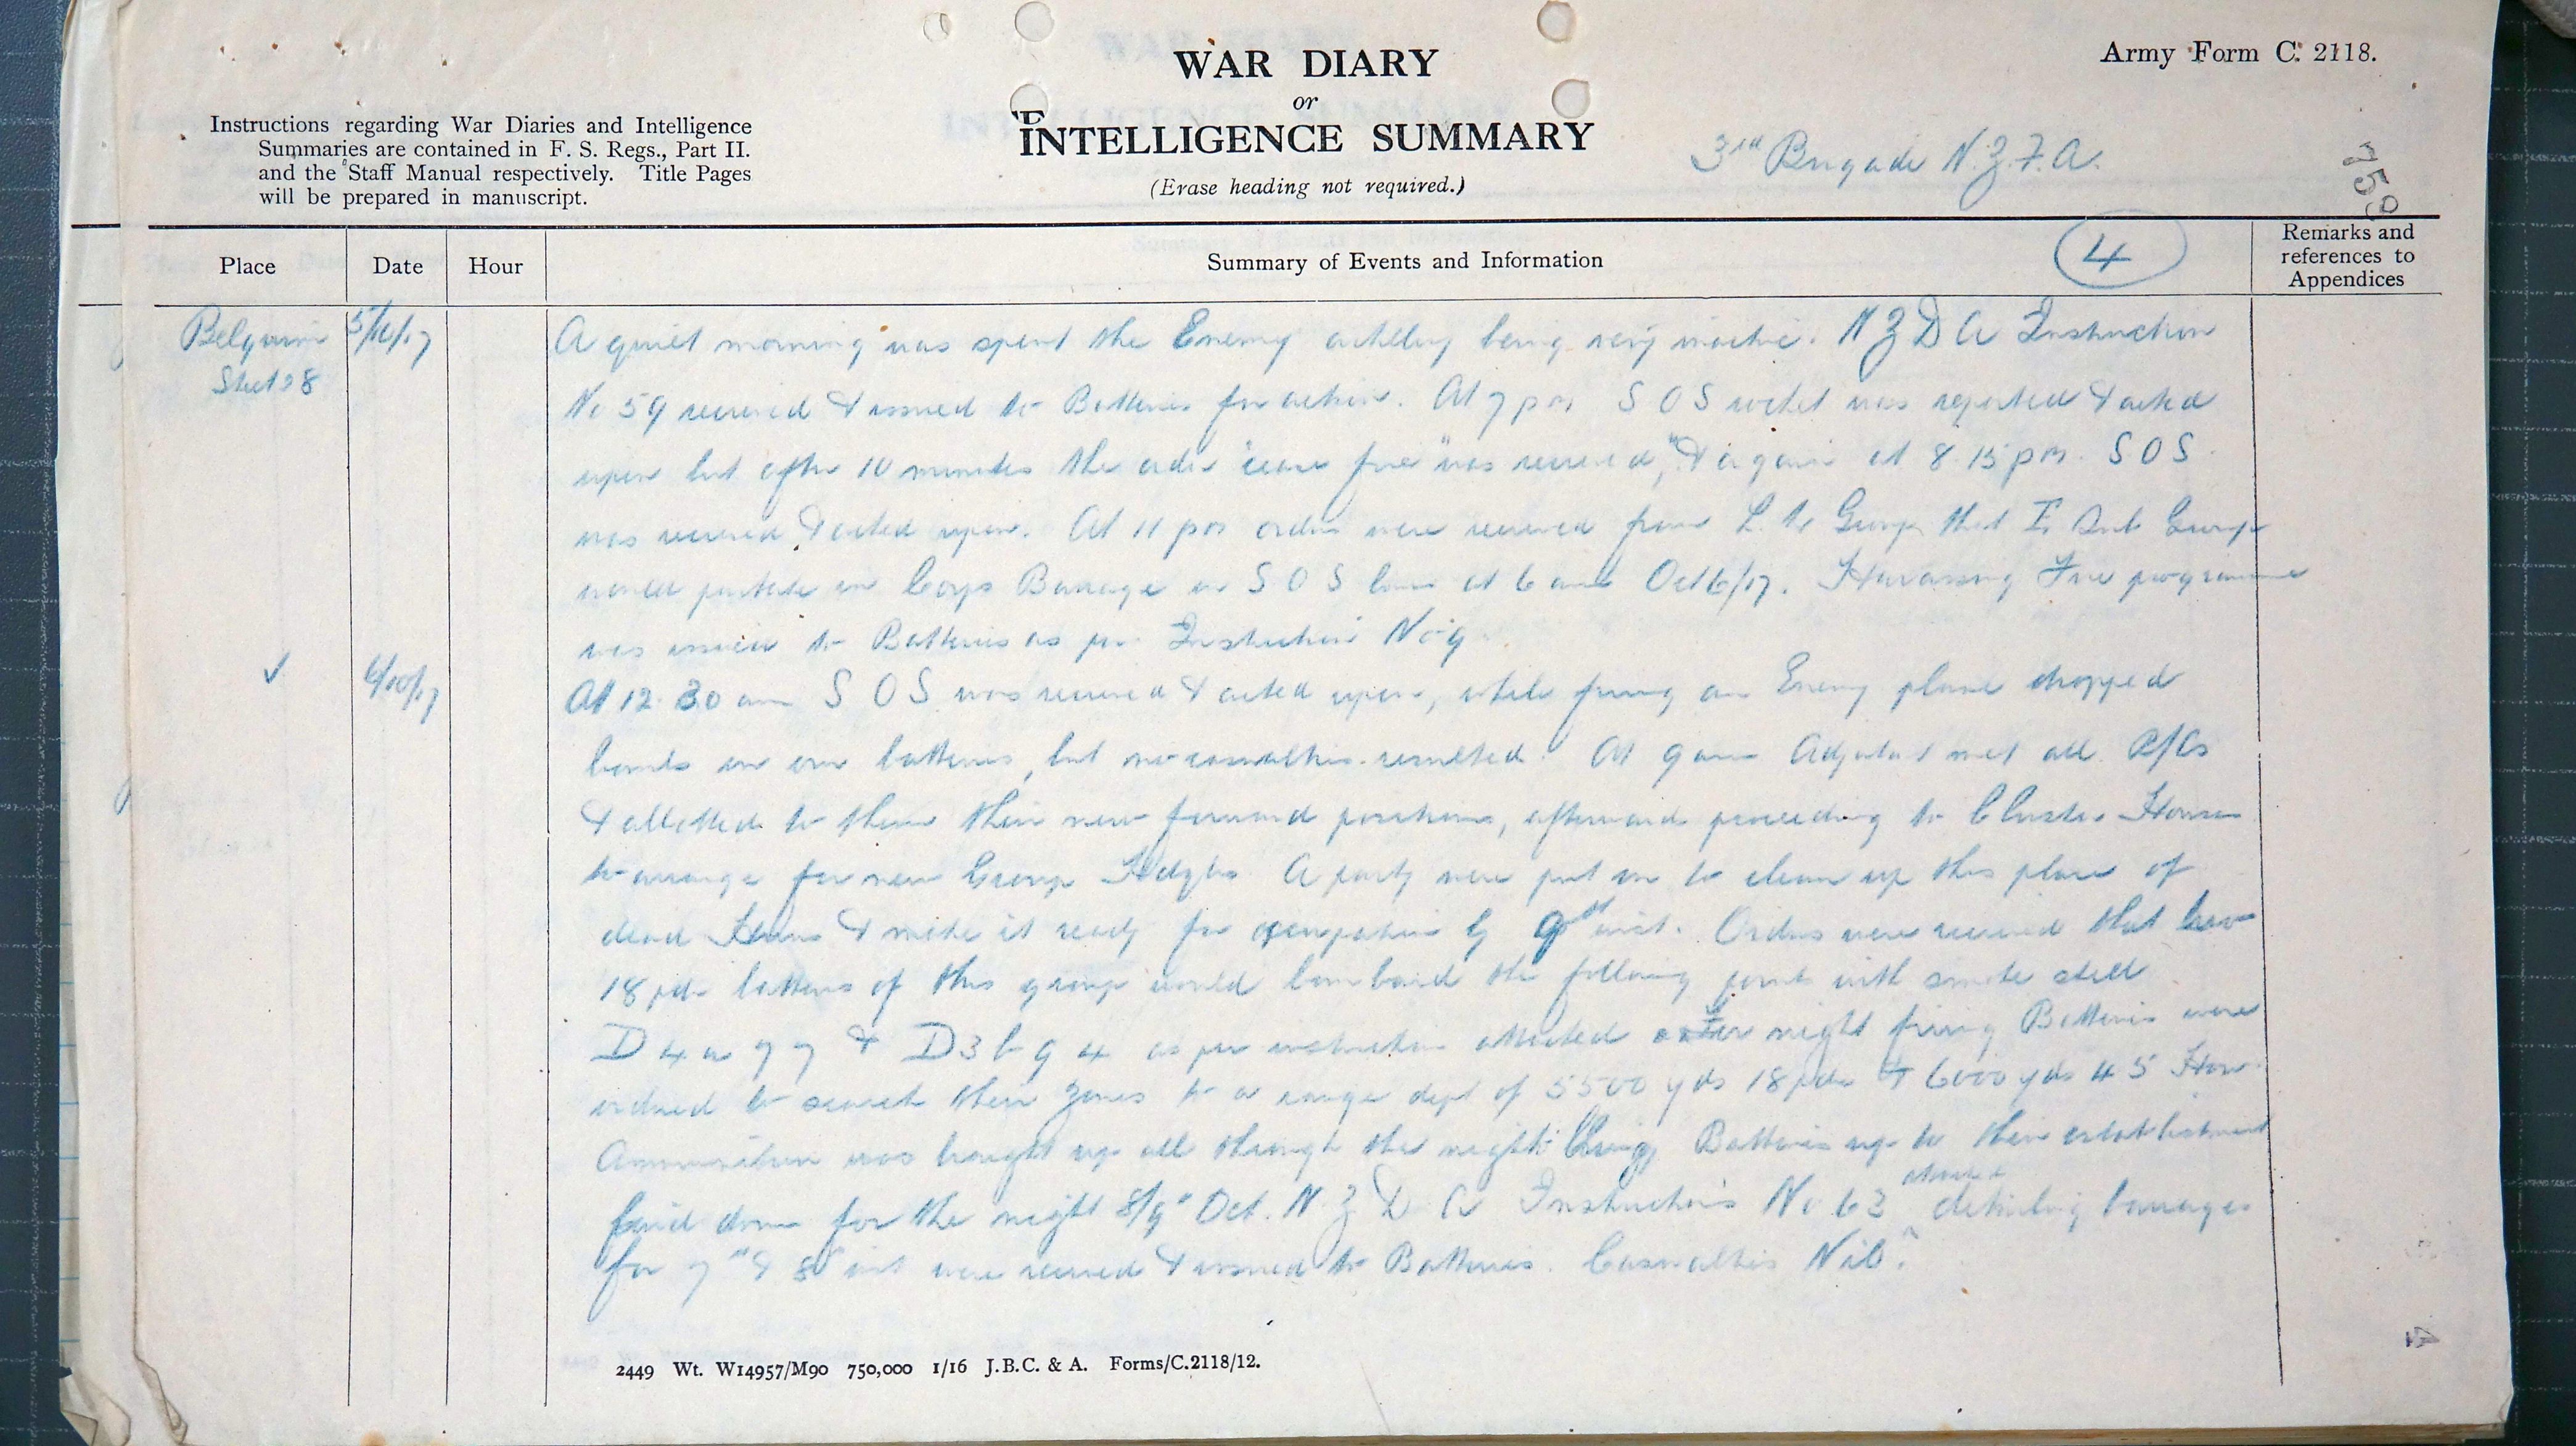 WAR DIARY
or
INTELLIGENCE SUMMARY
(Erase heading not required.)
Army Form C. 2118.
Instructions regarding War Diaries and Intelligence
Summaries are contained in F. S. Regs., Part II.
and the Staff Manual respectively. Title Pages
will be prepared in manuscript.
3rd Brigade N.Z.F.A.
759
4
Place Date Hour Summary of Events and Information Remarks and references to Appendices
Belgium 5/10/17
Sheet 28
A quiet morning was spent the Enemy artillery being very inactive. N Z D A Instruction
No 59 received & issued to Batteries for action. At 7 pm S O S rocket was reported & acted
upon but after 10 minutes the order "cease fire" was received, & again at 8 15 pm. S O S
was received & acted upon. At 11 pm orders were received from Group that Sub Group
would partake in Corps Barrage on S O S lines at 6 am Oct 6/17. Harassing Fire programme
was issued to Batteries as per Instruction No 9
6/10/17
At 12.30 am S O S was received & acted upon, while firing an Enemy plane dropped
bombs on our batteries, but no casualties resulted. At 9 am Adjutant met all
& allotted to them their new forward positions, afterwards proceeding to Cluster Houses
to arrange for new Group Hdqrs. A party were put on to clean up this place of
dead Huns & make it ready for occupation by 9th inst. Orders were received that
18 pdr batteries of this group would bombard the following points with smoke shell
D 4 a 7 7 & D 3 b 9 4 as per instruction attached night firing Batteries were
ordered to search their zones to a range dept of 5500 yds 18 pdr & 6000 yds 4 5 How.
Ammunition was brought up all through the night bring Batteries up to their establishment
laid down for the night 8/9th Oct. N Z D A Instructions No 63 attached detailing barrages
for 7th & 8th inst were received & issued to Batteries. Casualties Nil.
2449 Wt. W14957/M90 750,000 1/16 J.B.C. & A. Forms/C.2118/12.